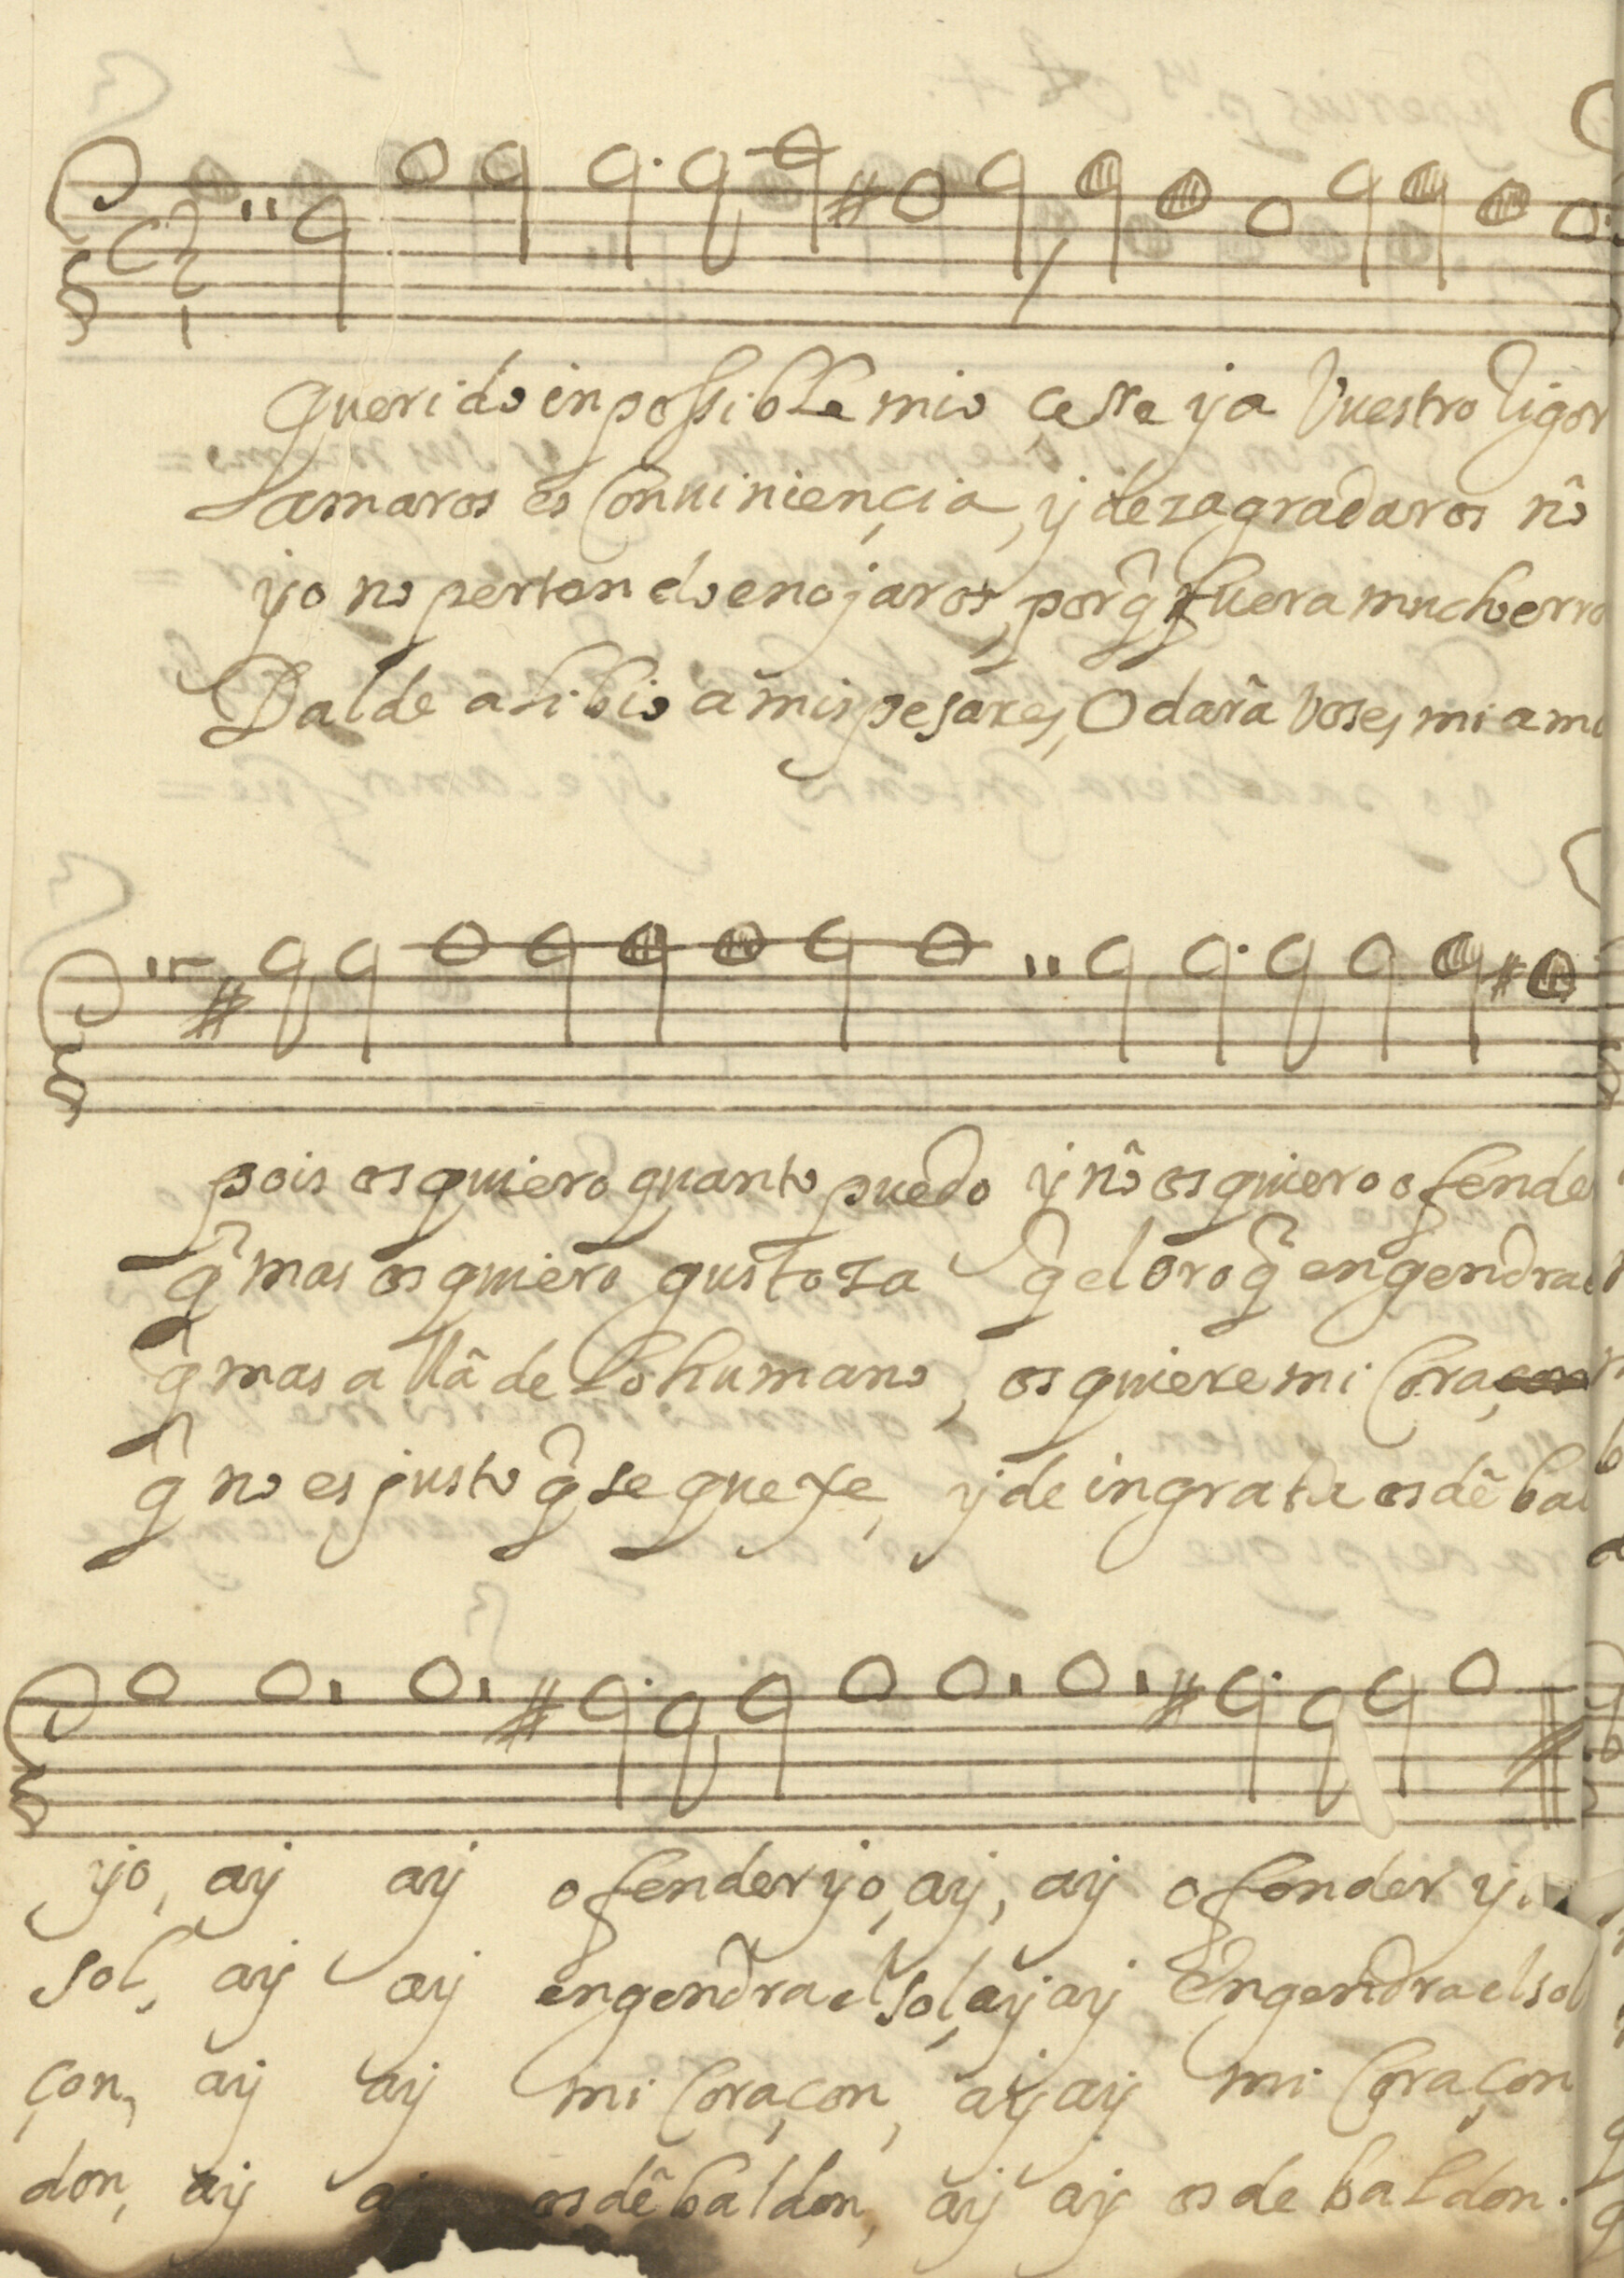 Querido inpossible mio çesse ya Vuestro Rigor
amaros es Conuiniençia, y dezagradaros nõ
yo no perten do enojaros, por q̃ fuera mucho erro
Dalde alibio ã mis pesares, O darã Voses mi amo
pois os quiero quanto puedo y nõ os quiero ofende
q̃ mas os quiero gustoza q̃ el oro q̃ engendra e
q̃ mas allã de lo humano, os quiere mi Coraçon
q̃ no es justo q̃ se quexe, y de ingrata os dẽ bal
yo, ay ay ofender yo, ay, ay ofender y
sol, ay ay engendra el sol, ay ay Engendra el sol
çon, ay ay mi Coraçon, ay ay mi Coraçon
don, ay ay os dẽ baldon, ay ay os de baldon.